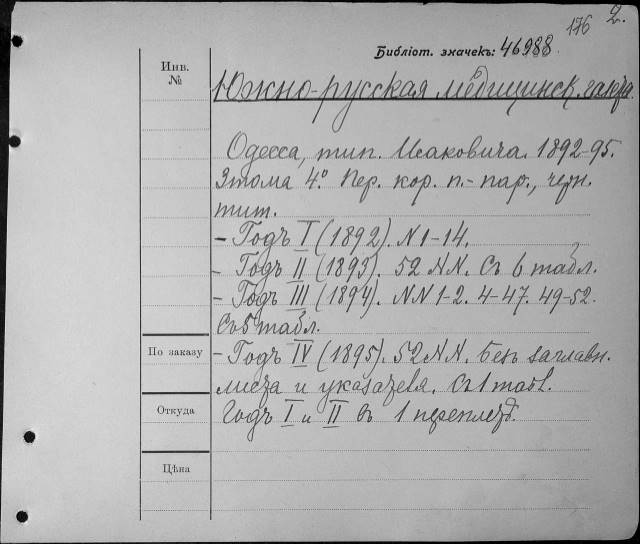 176 2.
Библіот. значекъ: 46988
Инв.
№
Южно-русская медицинск. газета.
Одесса, тип. Исаковича. 1892-95.
3 тома 4º. Пер. кор. п.-пар., черн.
тит.
- Годъ I (1892). N 1-14.
- Годъ II (1893). 52 NN. Съ 6 табл.
- Годъ III (1894). NN 1-2. 4-47. 49-52.
Съ 5 табл.
По заказу
- Годъ IV (1895). 52 NN. Безъ заглавн.
листа и указателя. Съ 1 табл.
Откуда
Годъ I и II въ 1 переплетѣ.
Цѣна